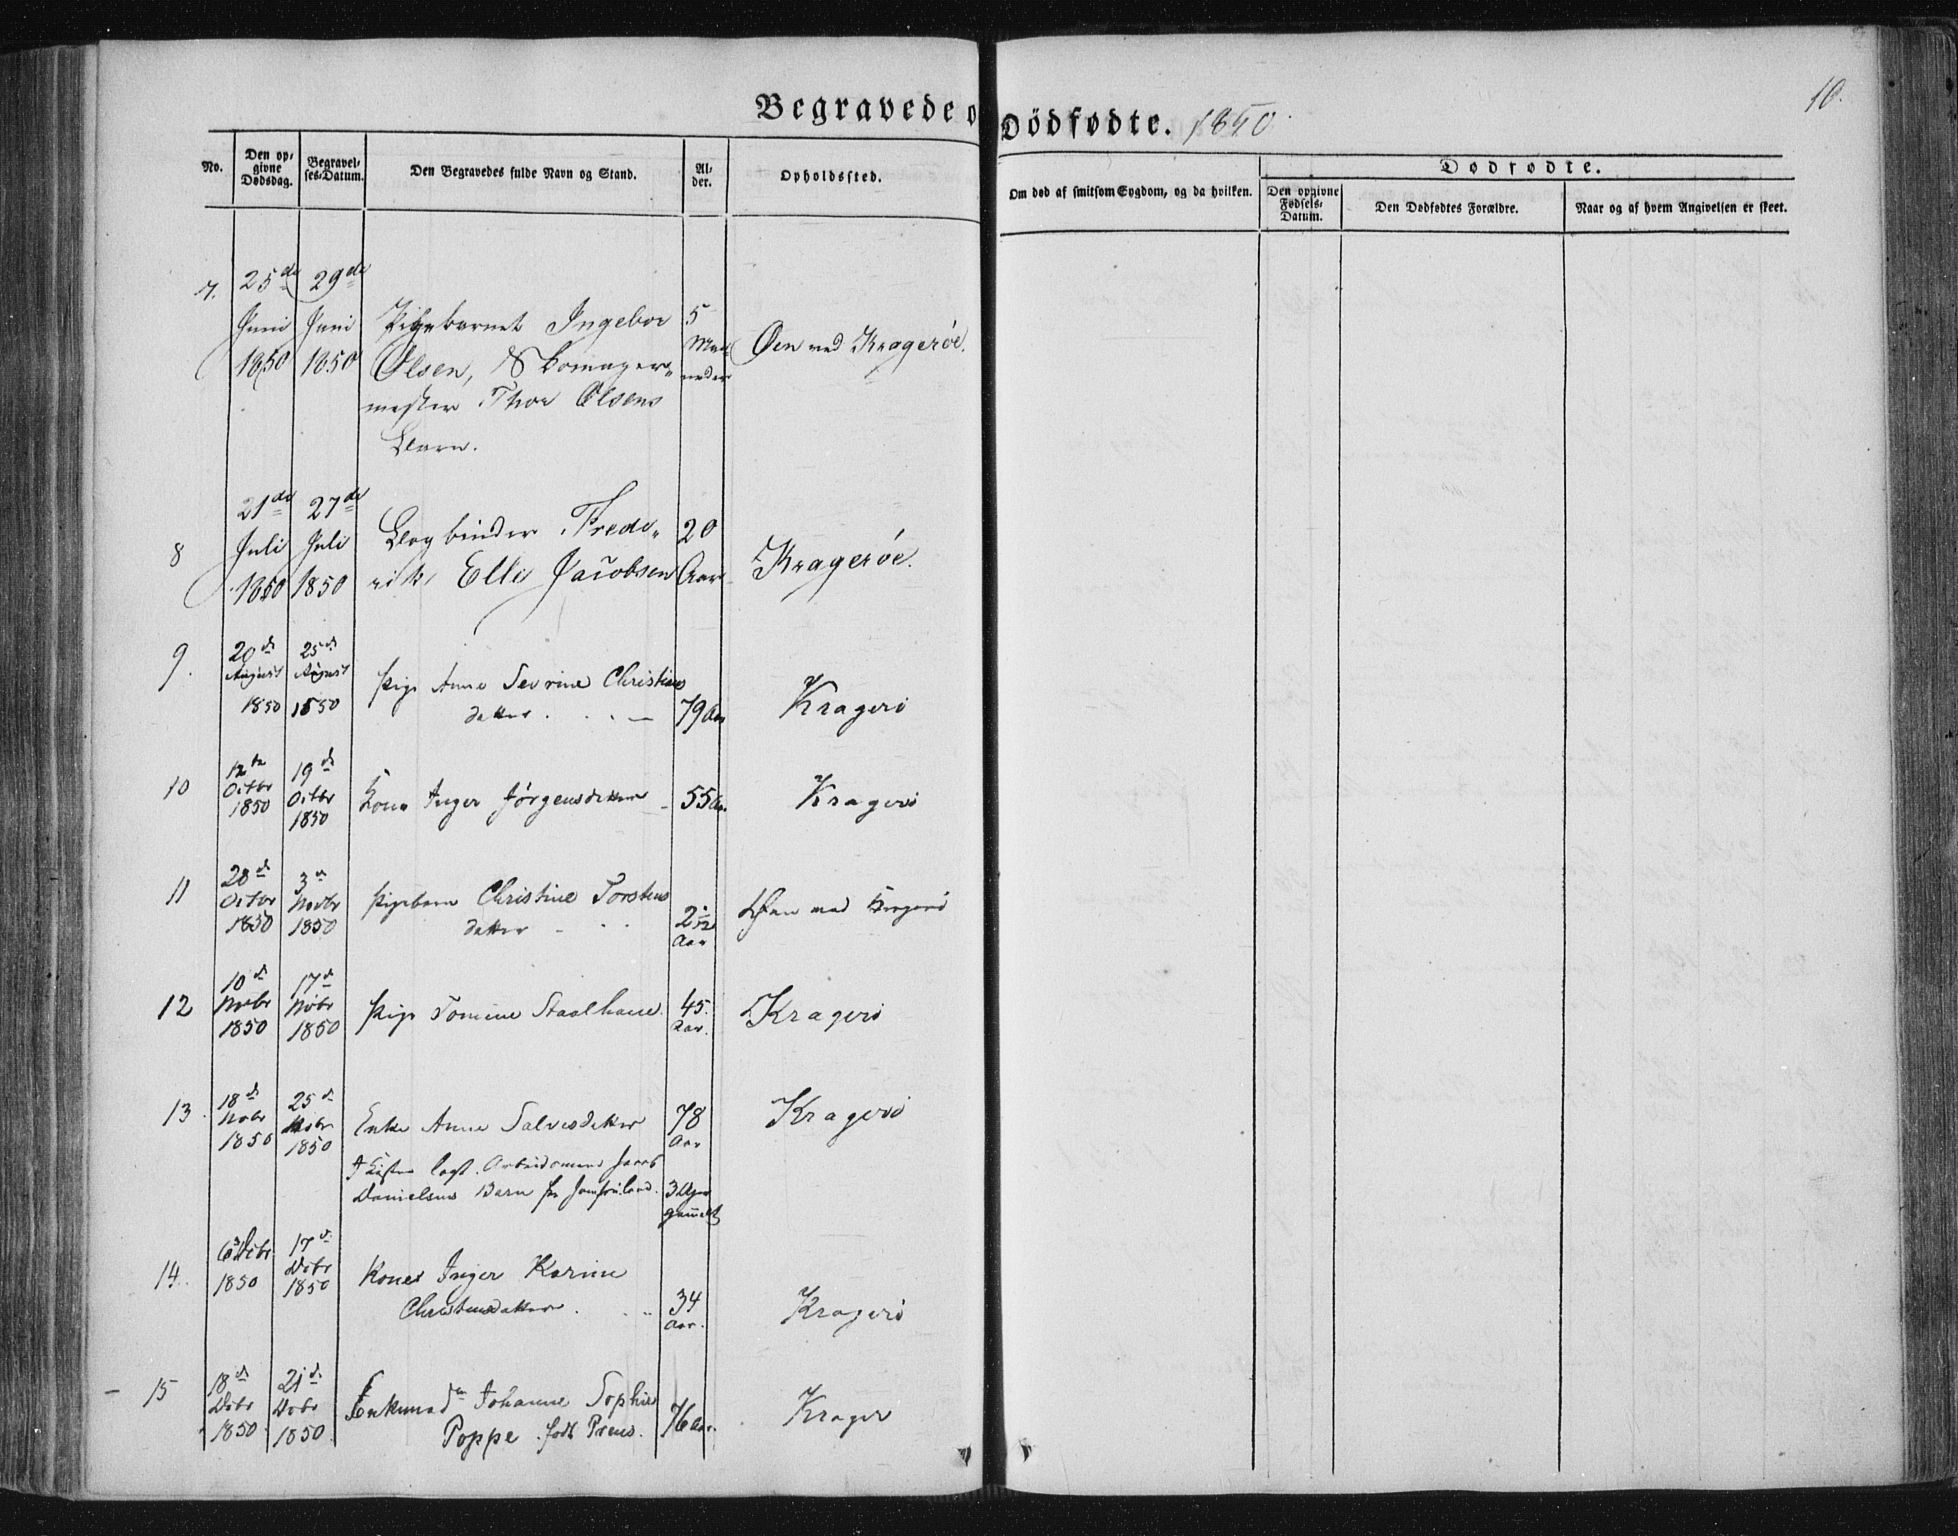 10.
Begravede o
Dödfødte. 1850.
No.
Den opgivne Dødsdag.
Begravelses-Datum.
Den Begravedes fulde Navn og Stand.
Alder.
Opholdssted.
Om død af smitsom Sygdom, og da hvilken.
Dødfødte.
Den opgivne Fødsels-Datum.
Den Dødfødtes Forældre.
Naar og af hvem Angivelsen er skeet.
7.
25de Juni 1850
29de Juni 1850
Pigebarnet Ingebor
Olsen, Skomager„
mester Thor Olsens
Barn.
5 Maaneder
Øen ved Kragerøe.
8
21de Juli 1850
27de Juli 1850
Bogbinder Frede„
rik Elle Jacobsen
20 Aar
Kragerøe.
9.
20de August 1850
25de August 1850
Pige Anne Sevrine Christians
datter . . . —
79 Aar
Kragerö
10
12te Octbr 1850
19de Octbr 1850
Kone Inger Jörgensdatter
55 Aar.
Kragerö
11
28de Octbr 1850
3de Novbr 1850
Pigebarn Christine Torstens
datter
2 Aar
Øen ved Kragerö
12
10de Novbr 1850
17de Novbr 1850
Pige Tomine Staalhane.
45. Aar.
Kragerö
13.
18de Novbr 1850
25de Novbr 1850
Enke Anne Salvesdatter
78 Aar
Kragerö
I Kisten lagt. Arbeidsmand Jacob
Danielsens Barn fra Jomfruland.
3 Uger gammelt
14.
6 Decbr 1850
17de Decbr 1850
Kone Inger Karine
Christensdatter . . „
34 Aar.
Kragerö
15
18de Decbr 1850
21de Decbr 1850
Enkemad. Johanne Sophie
Poppe født Preus.
76 Aar.
Krager